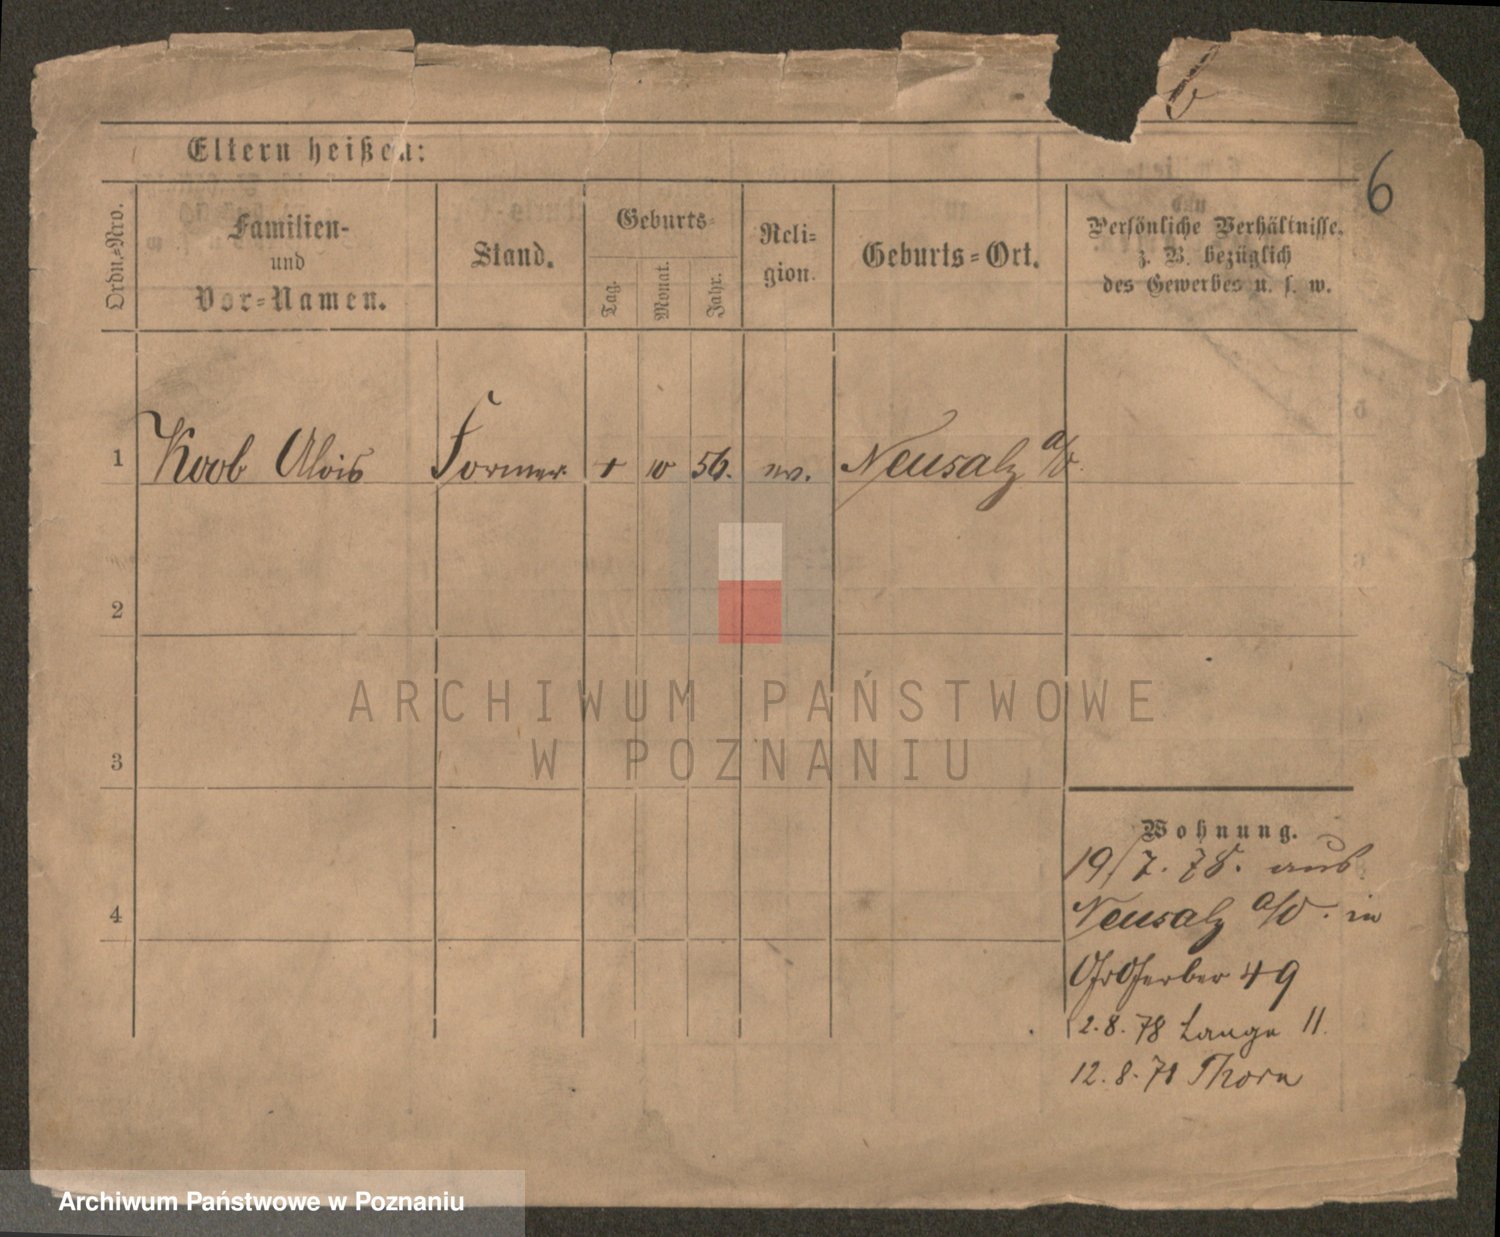 6
6
Eltern heißen:
Ordn.-Nro.
Familien-
und
Vor-Namen.
Stand.
Geburts-
Tag.
Monat.
Jahr.
Reli-
gion.
Geburts-Ort.
Persönliche Verhältnisse.
z. B. bezüglich
des Gewerbes u. s. w.
1 Koob Alois Former 10 56. ev. Neusalz a/O.
2
3
4
ARCHIWUM PAŃSTWOWE
W POZNANIU
Wohnung.
19/7. 78. aus
Neusalz a/O. in
Gr Gerber 49
2.8.78 Lange 11.
12.8.78 Thorn
Archiwum Państwowe w Poznaniu